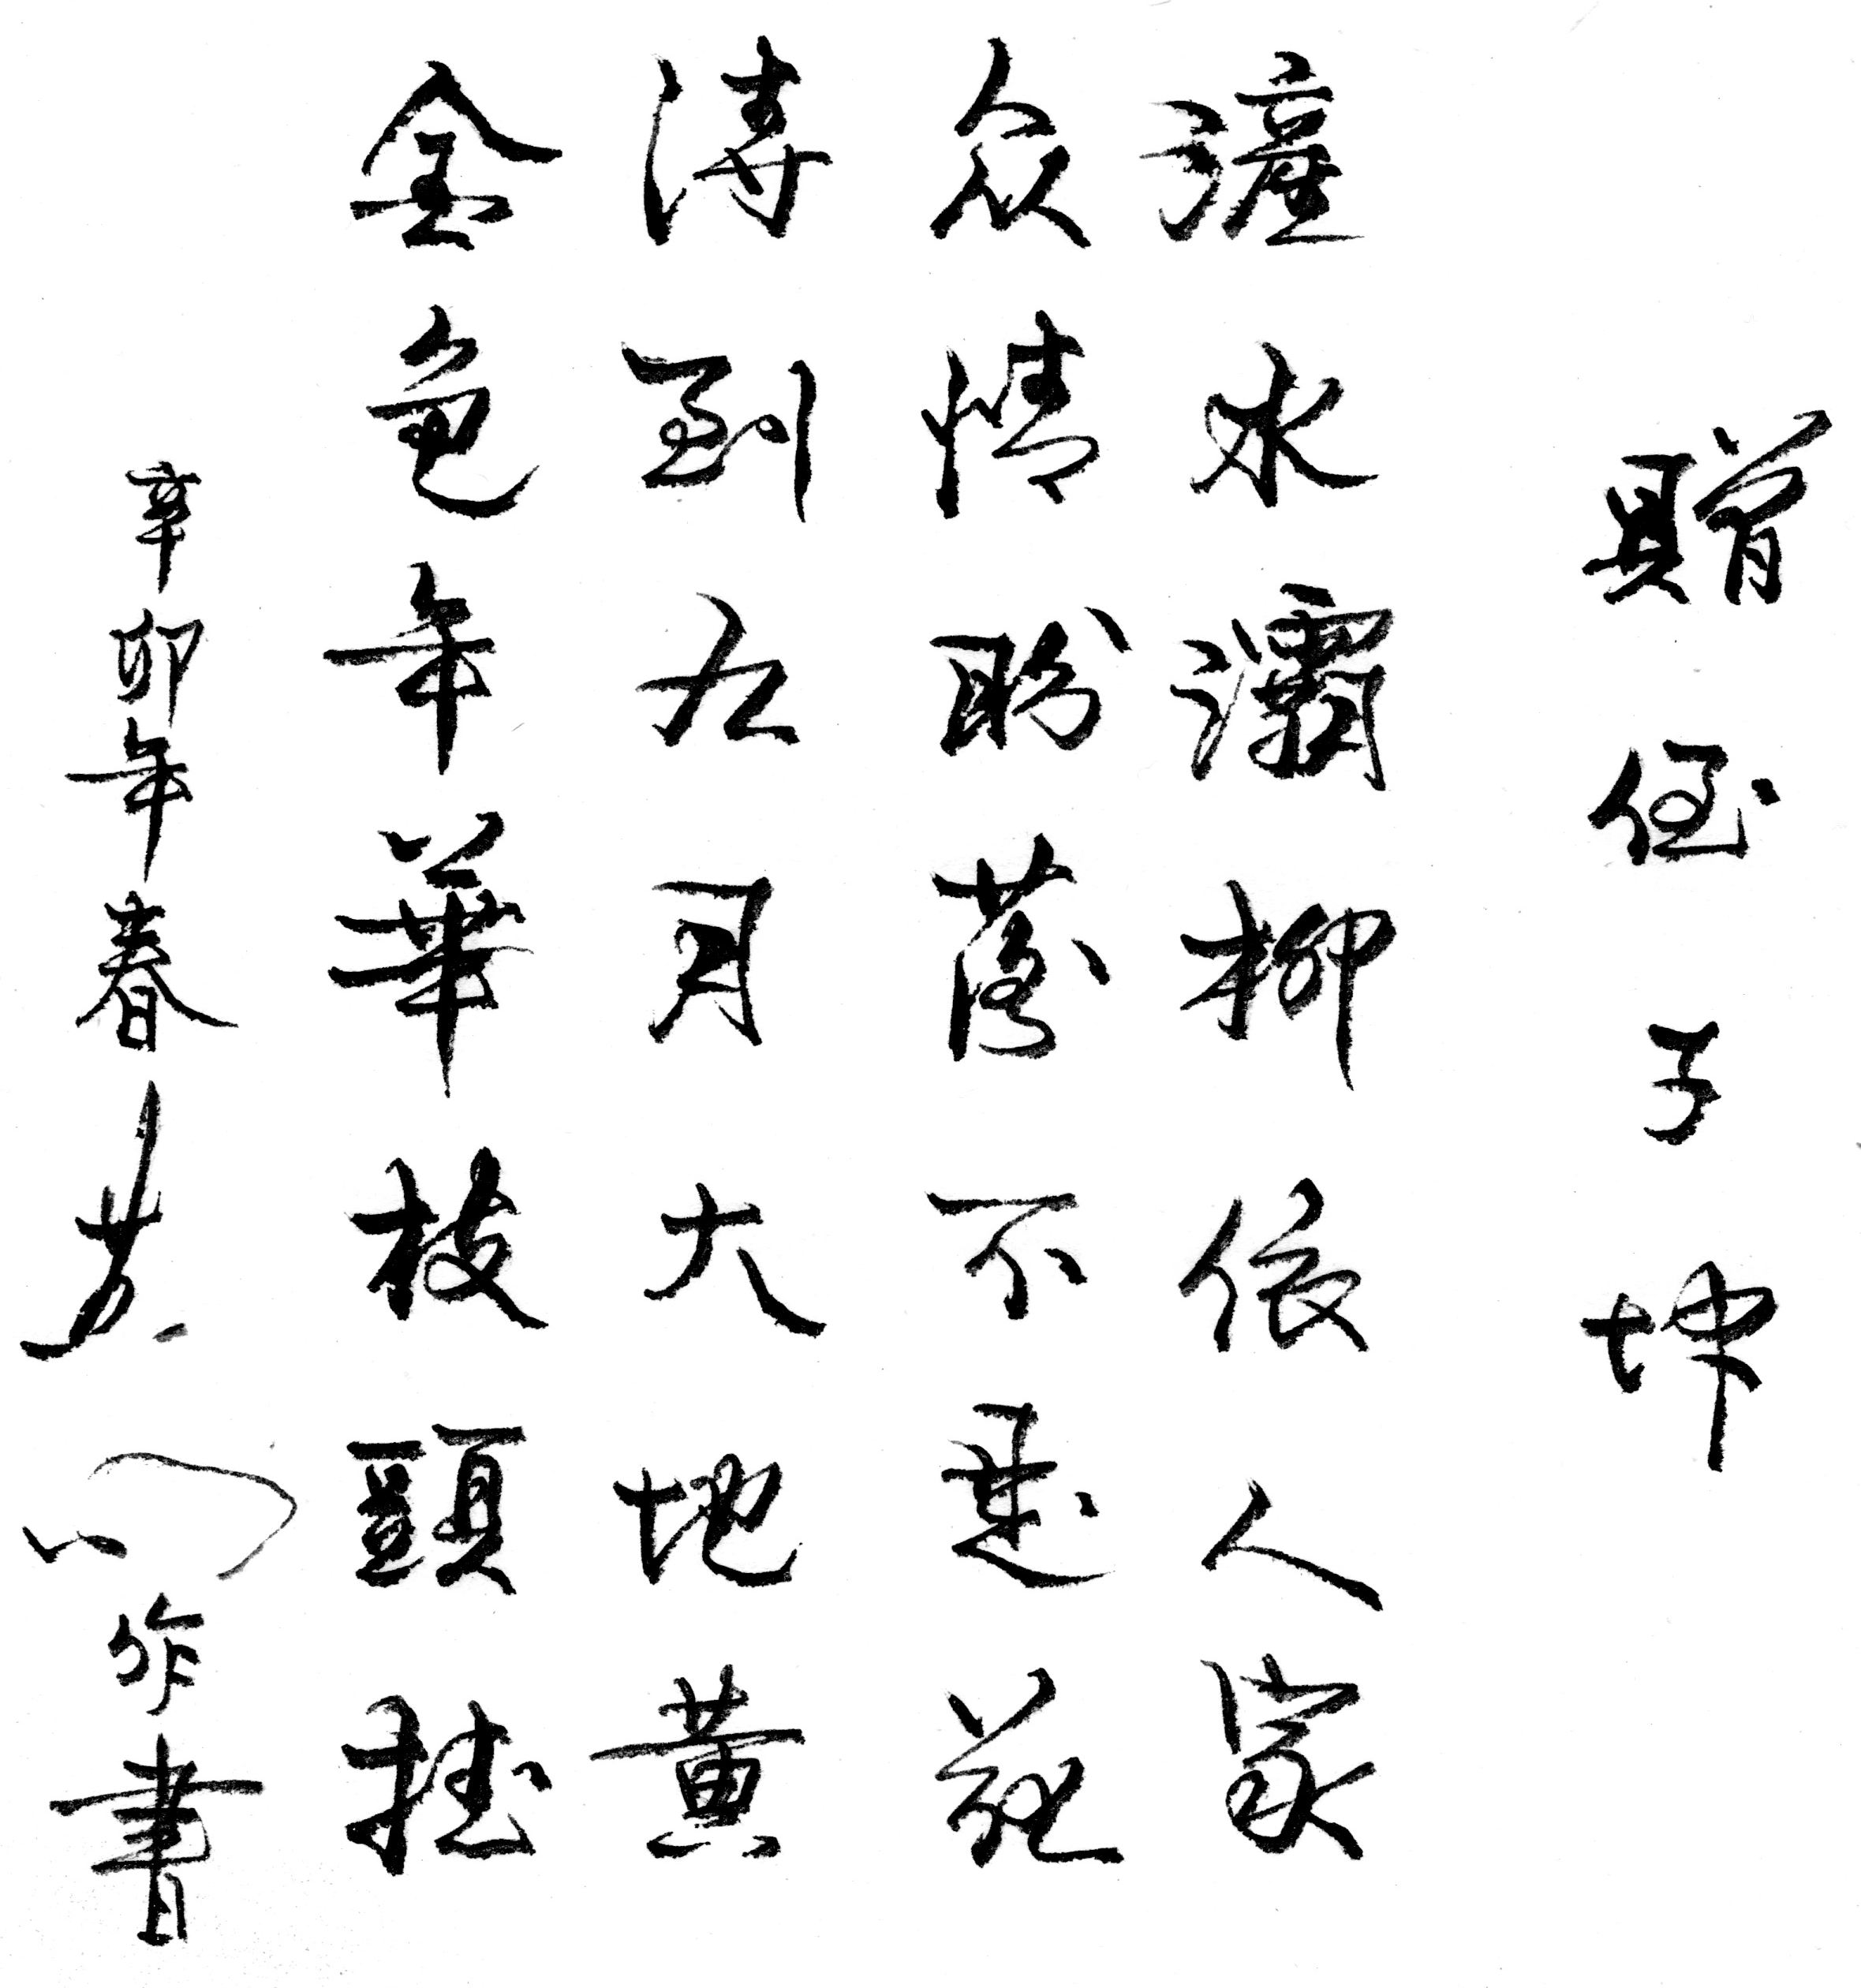 贈侄子坤
滻水灞柳依人家
众情盼蔭不是花
待到九月大地黃
金色年華枝頭掛
辛卯年春 作書